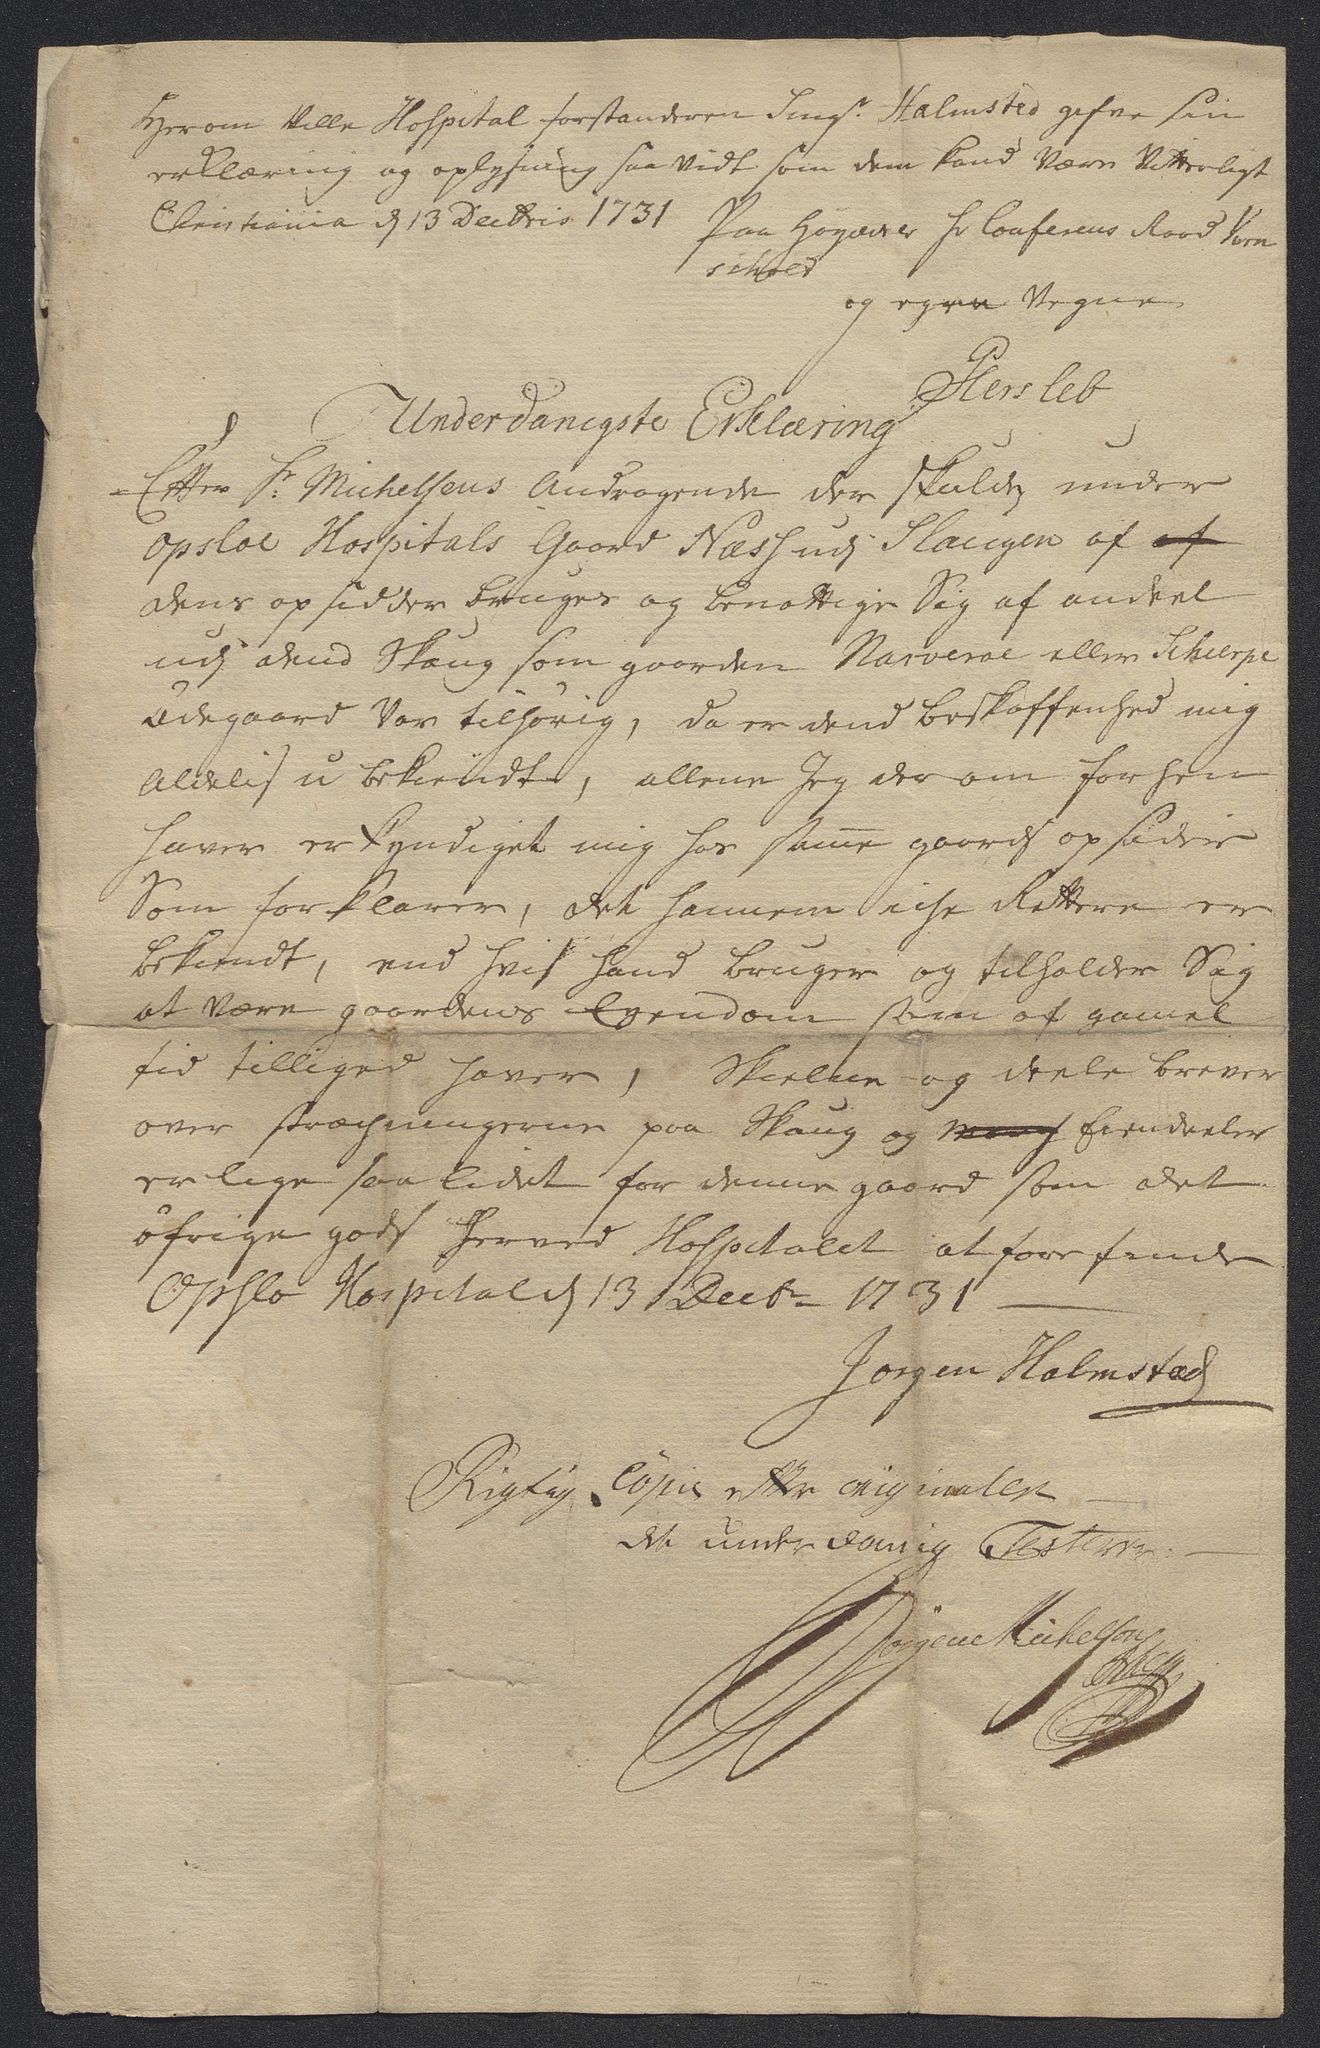 Herom Ville Hospital forstanderen Sing.r Halmsted gifve sin
erklæring og oplysning saa vidt som dem kand være vitterligt
Christiania d 13 Decbris 1731 Paa Høyædle Hr Conferens Raad
og egne Vegne
PHersleb
Underdanigste Erklæring
Efter Sr: Michelsens Andragende der skulde under
Opsloe Hospitals Gaard Næss udj Slaugen af af
dens opsidder bruges og benøttige Sig af andeel
udj dend Skaug som gaarden Narverøe eller Scheerpe
Ødegaard var tilhørig, da er dend beskaffenhed mig
Aldelis u bekiendt, allene Jeg der om forhen
haver er kyndiget mig hos samme gaards opsider
Som forklarer, det hannem iche Rettere er
bekiendt, end hvis hand bruger og tilholder Sig
at være gaardens Eyendom som af gamel
tid tilliged haver, Skielne og deele brever
over strechningerne paa Skaug og Eiendeeler
er lige saa lidet for denne gaard som det
øfrige gods herved Hospitalet at forefinde
Opslo Hospital d 13 Decbr 1731
Jørgen Halmsted
Rigtig Copie efter originalen
det underdanig Testerer
Jørgen Michelsen